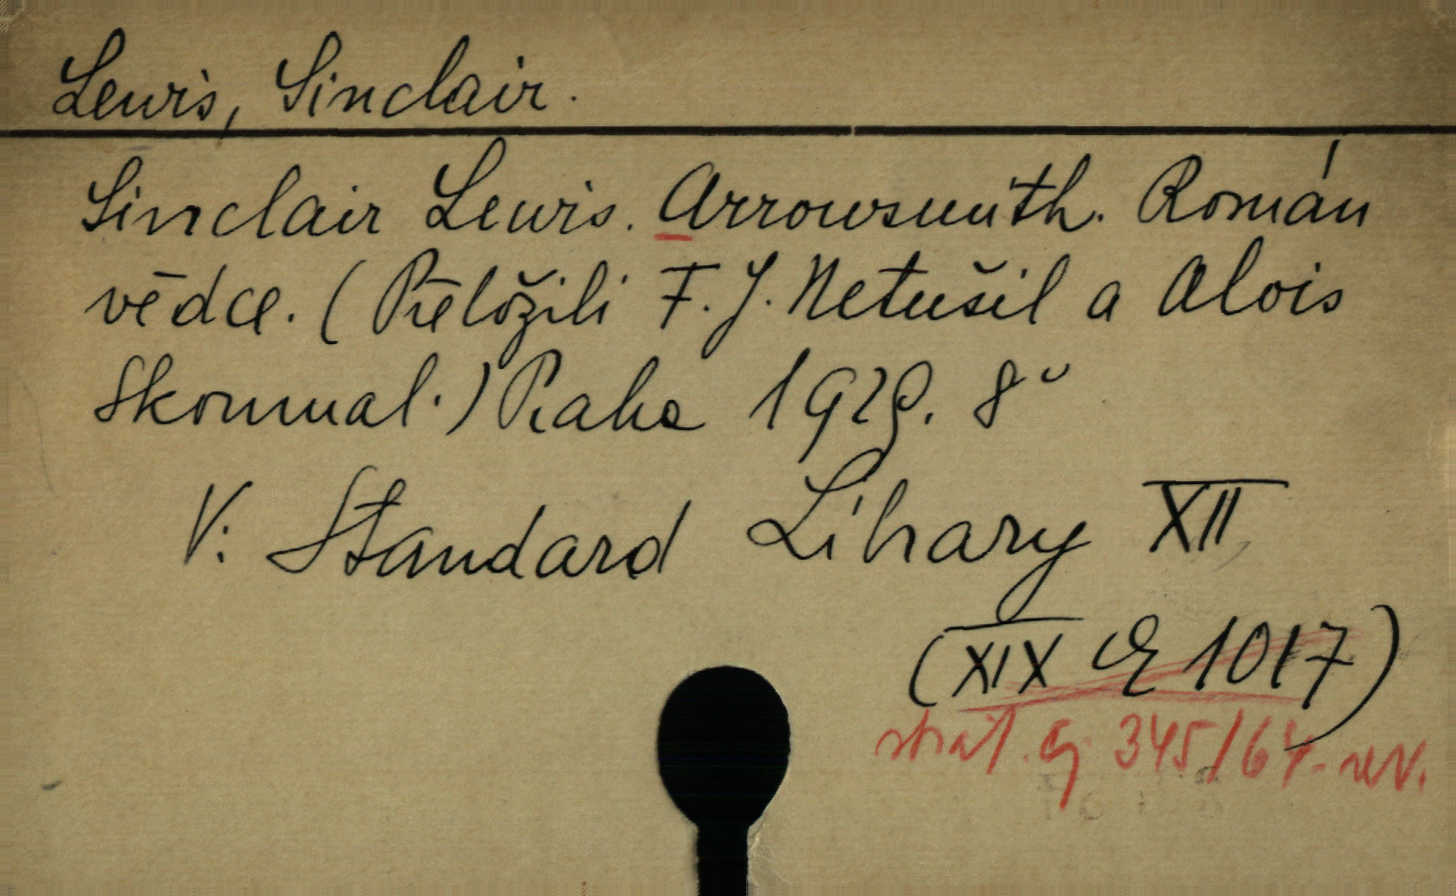 Lewis, Sinclair.
Sinclair Lewis. Arrowsmith. Román
vědce. (Přeložili F. J. Netušil a Alois
Skoumal.) Praha 1929. 8°
V: Standard Library XII
(XIX E 1017)
ztrát. čj 345/64-rev.